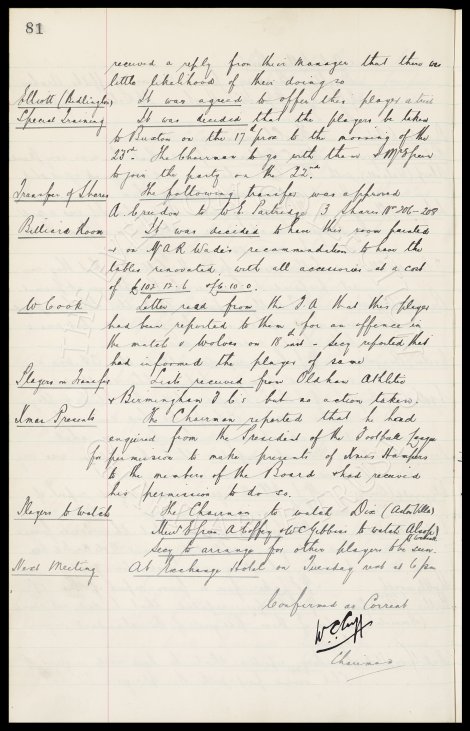 81
received a reply from their Manager that there was
little likelihood of their doing so
Elliott (Bedlington) It was agreed to offer this player a trial
Special Training It was decided that the players be taken
to Buxton on the 17th prox to the morning of the
23rd. The Chairman to go with them &
to join the party on the 22nd
Transfer of Shares The following transfer was approved
A. Creedon to W E Partridge 3 Shares No 206-208
Billiard Room It was decided to have this room painted
& on Mr A R Wade's recommendation to have the
tables renovated with all accessories at a cost
of £102.12.6 & £6.10.0.
W Cook Letter read from the F A that this player
had been reported to them for an offence in
the match v Wolves on 18th inst - Secy reported that
had informed the player of same
Players on Transfer Lists received from Oldham Athletic
& Birmingham F C's but no action taken.
Xmas Presents The Chairman reported that he had
enquired from the President of the Football League
for permission to make presents of Xmas Hampers
to the members of the Board & had received
his permission to do so.
Players to watch The Chairman to watch Dix (Aston Villa)
Messrs Green A Coffey & W C Gibbins to watch Alsop
Secy to arrange for other players to be seen.
Next Meeting At Exchange Hotel on Tuesday next at 6 pm
Confirmed as Correct
W.C. Cuff
Chairman